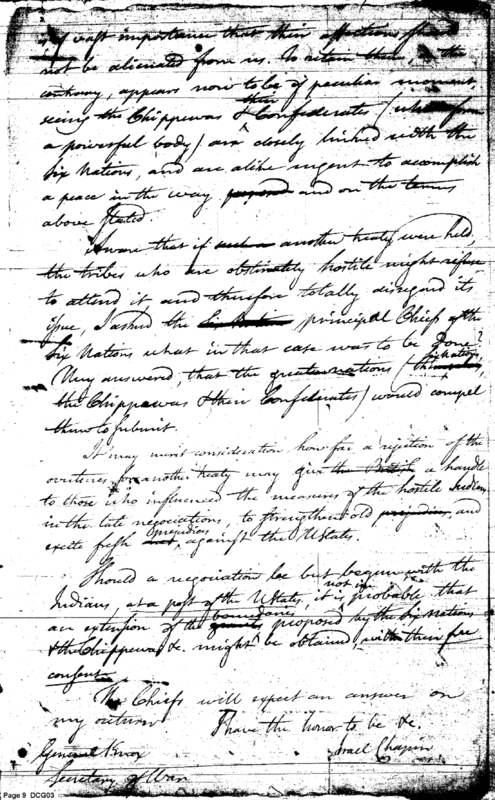 of vast importance that their affections should
not be alienated from us. To retain them, on the
contrary, appears now to be of peculiar moment,
seeing the Chippewas & their Confederates (who form
a powerful body) are closely linked with the
Six Nations, and are alike urgent to accomplish
a peace in the way proposed and on the terms
above stated
Aware that if such a another treaty were held,
the tribes who are obstinately hostile might refuse
to attend it and therefore totally disregard its
issue, I asked the Six Nations principal Chiefs of the
Six Nations what in that case was to be done?
They answered, that the greater nations (themselves Six Nations,
the Chippewas & their Confederates) would compel
them to submit.
It may merit consideration how far a rejection of the
overtures for another treaty may give the British a handle
to those who influenced the measures of the hostile Indians
in the late negociations, to strengthen old prejudices, and
excite fresh prejudices against the UStates.
Should a negociation be but begun with the
Indians, at a post of the UStates, it is not improbable that
an extension of the boundaries proposed by the Six Nations
& the Chippewas &c. might be obtained, with their free
consent.
The Chiefs will expect an answer on
my return I have the honor to be &c.
General Knox Israel Chapin
Secretary of War
Page 9 DCG03